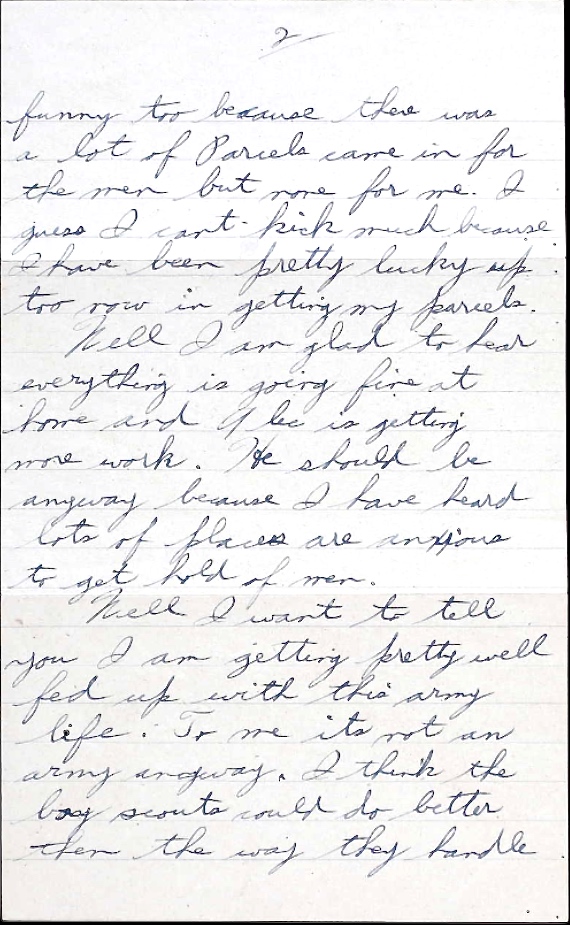 2
funny too because there was
a lot of Parcels came in for
the men but none for me. I
guess I cant kick much because
I have been pretty lucky up
too now in getting my parcels.
Well I am glad to hear
everything is going fine at
home and Alec is getting
more work. He should be
anyway because I have heard
lots of places are anxious
to get hold of men.
Well I want to tell
you I am getting pretty well
fed up with this army
life. To me its not an
army anyway. I think the
boy scouts could do better
then the way they handle